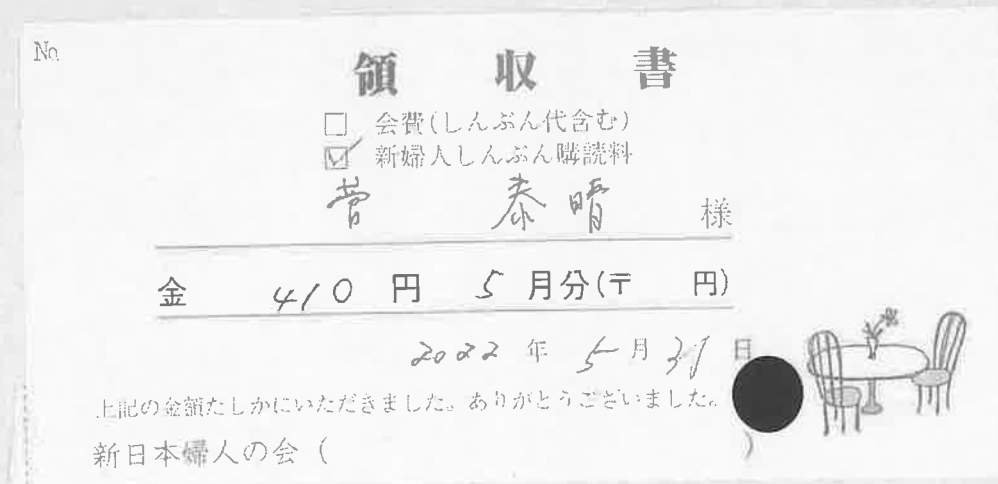 No.
領収書
□ 会費(しんぶん代含む)
☑ 新婦人しんぶん購読料
菅 泰晴 様
金 410 円 5 月分(〒 円)
2022 年 5 月 31 日
上記の金額たしかにいただきました。ありがとうございました。
新日本婦人の会 ( )